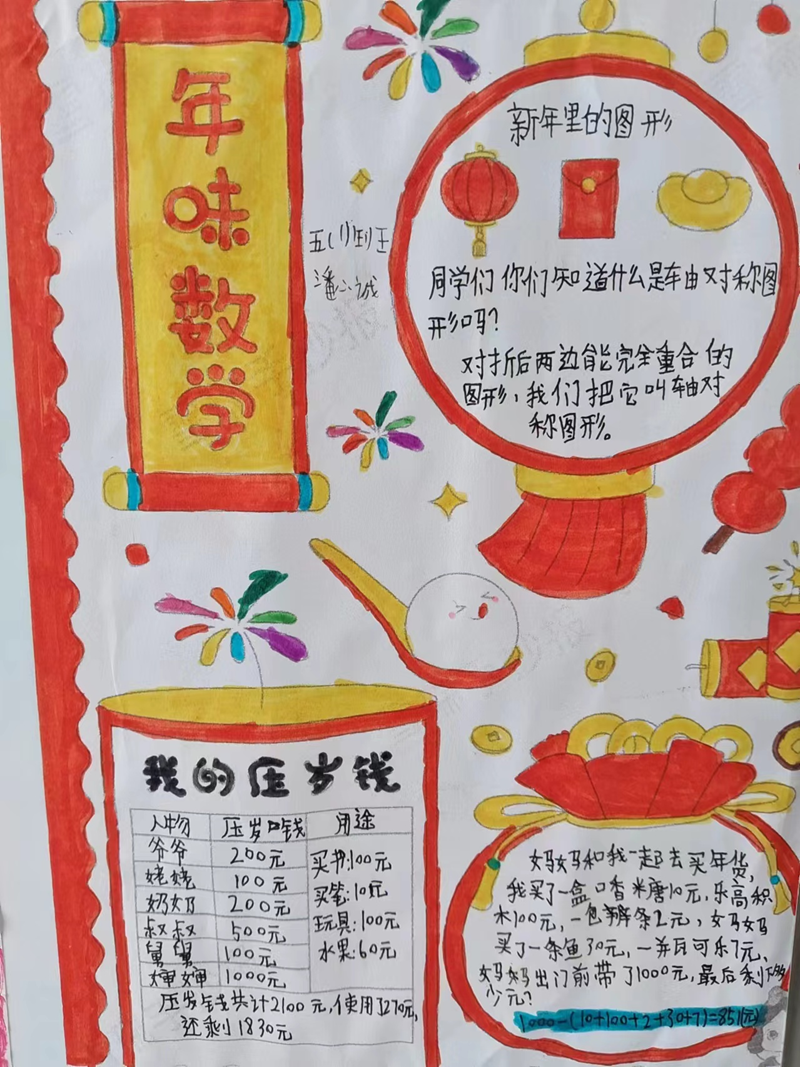 年味数学
五(1)班王
潘小诚
新年里的图形
同学们你们知道什么是轴对称图
形吗?
对折后两边能完全重合的
图形,我们把它叫轴对
称图形。
我的压岁钱
人物 压岁钱 用途
爷爷 200元 买书:100元
姥姥 100元 买笔:10元
奶奶 200元 玩具:100元
叔叔 500元 水果:60元
舅舅 100元
婶婶 1000元
压岁钱共计2100元,使用了270元,
还剩1830元
妈妈和我一起去买年货,
我买了一盒口香米糖10元,乐高积
木100元,一包辣条2元,妈妈
买了一条鱼30元,一并瓦可乐7元,
妈妈出门前带了1000元,最后剩下多
少元?
1000-(10+100+2+30+7)=851(元)